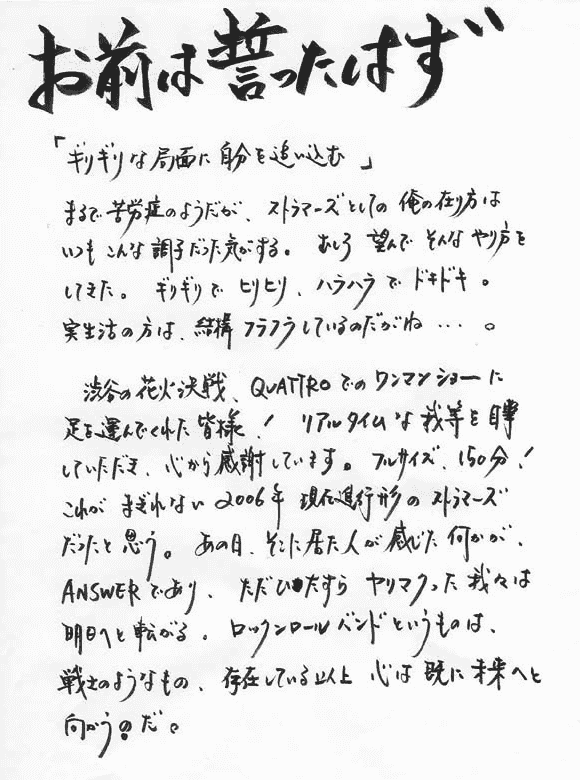 お前は誓ったはず
「ギリギリな局面に自分を追い込む」
まるで苦労症のようだが、ストラマーズとしての俺の在り方は
いつもこんな調子だった気がする。むしろ望んでそんなやり方を
してきた。ギリギリでヒリヒリ、ハラハラでドキドキ。
実生活の方は、結構フラフラしているのだがね・・・。
渋谷の花火決戦、QUATTROでのワンマンショーに
足を運んでくれた皆様！リアルタイムな我等を目撃
していただき、心から感謝しています。フルサイズ、150分！
これがまぎれない2006年現在進行形のストラマーズ
だったと思う。あの日、そこに居た人が感じた何かが、
ANSWERであり、ただひたすらヤリマクった我々は
明日へと転がる。ロックンロールバンドというものは、
戦士のようなもの、存在している以上心は既に未来へと
向かうのだ。